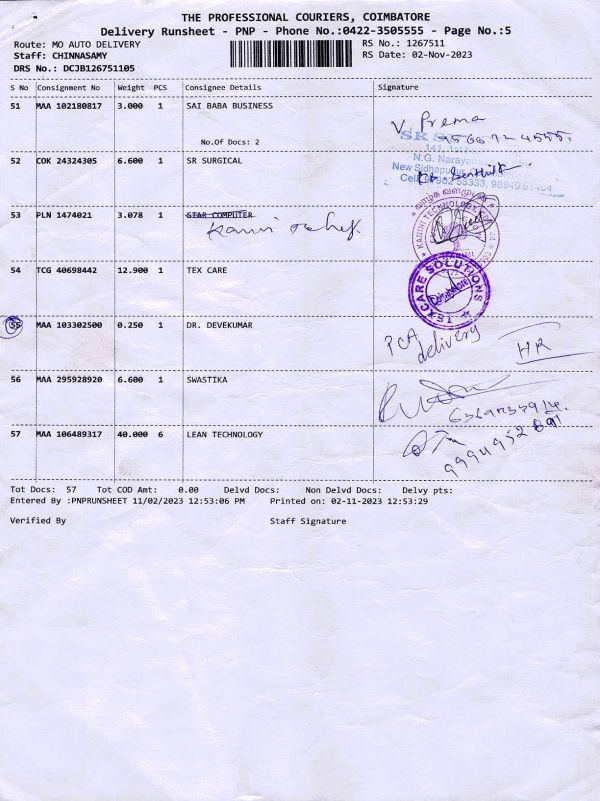 THE PROFESSIONAL COURIERS, COIMBATORE
Delivery Runsheet - PNP - Phone No.:0422-3505555 - Page No.:5
Route: MO AUTO DELIVERY RS No.: 1267511
Staff: CHINNASAMY RS Date: 02-Nov-2023
DRS No.: DCJB126751105
S No Consignment No Weight PCS Consignee Details Signature
51 MAA 102180817 3.000 1 SAI BABA BUSINESS
V. Prema
No.Of Docs: 2
52 COK 24324305 6.600 1 SR SURGICAL
N.G. Narayana
New Sidhapudur
53 PLN 1474021 3.078 1 STAR COMPUTER
வாழ்க வளமுடன்
54 TCG 40698442 12.900 1 TEX CARE
TEXCARE SOLUTIONS
Coimbatore
55 MAA 103302500 0.250 1 DR. DEVEKUMAR
delivery
HR
56 MAA 295928920 6.600 1 SWASTIKA
57 MAA 106489317 40.000 6 LEAN TECHNOLOGY
Tot Docs: 57 Tot COD Amt: 0.00 Delvd Docs: Non Delvd Docs: Delvy pts:
Entered By :PNPRUNSHEET 11/02/2023 12:53:06 PM Printed on: 02-11-2023 12:53:29
Verified By Staff Signature